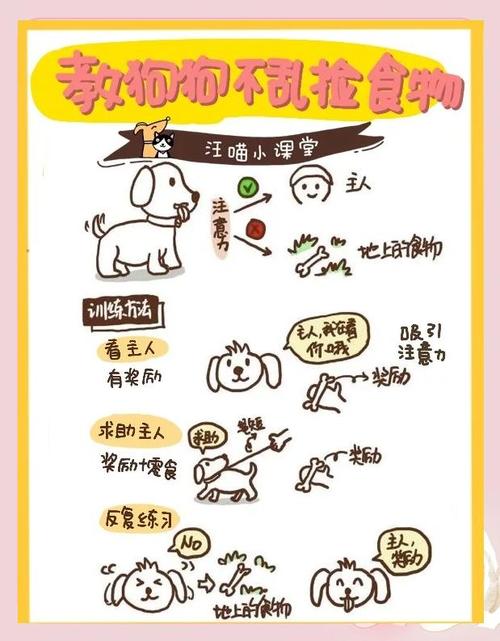 教狗狗不乱捡食物
汪喵小课堂
注意力
主人
地上的食物
训练方法
看主人
有奖励
主人,我在看
你哦
奖励
吸引
注意力
求助主人
奖励+零食
求助
奖励
反复练习
No
地上的食物
主人,
奖励